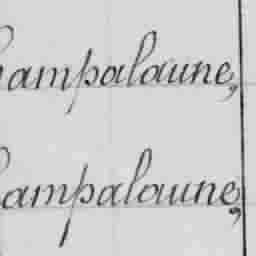 hampalaune,
hampalaune,